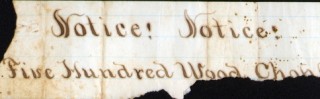 Notice! Notice!
Five Hundred Wood